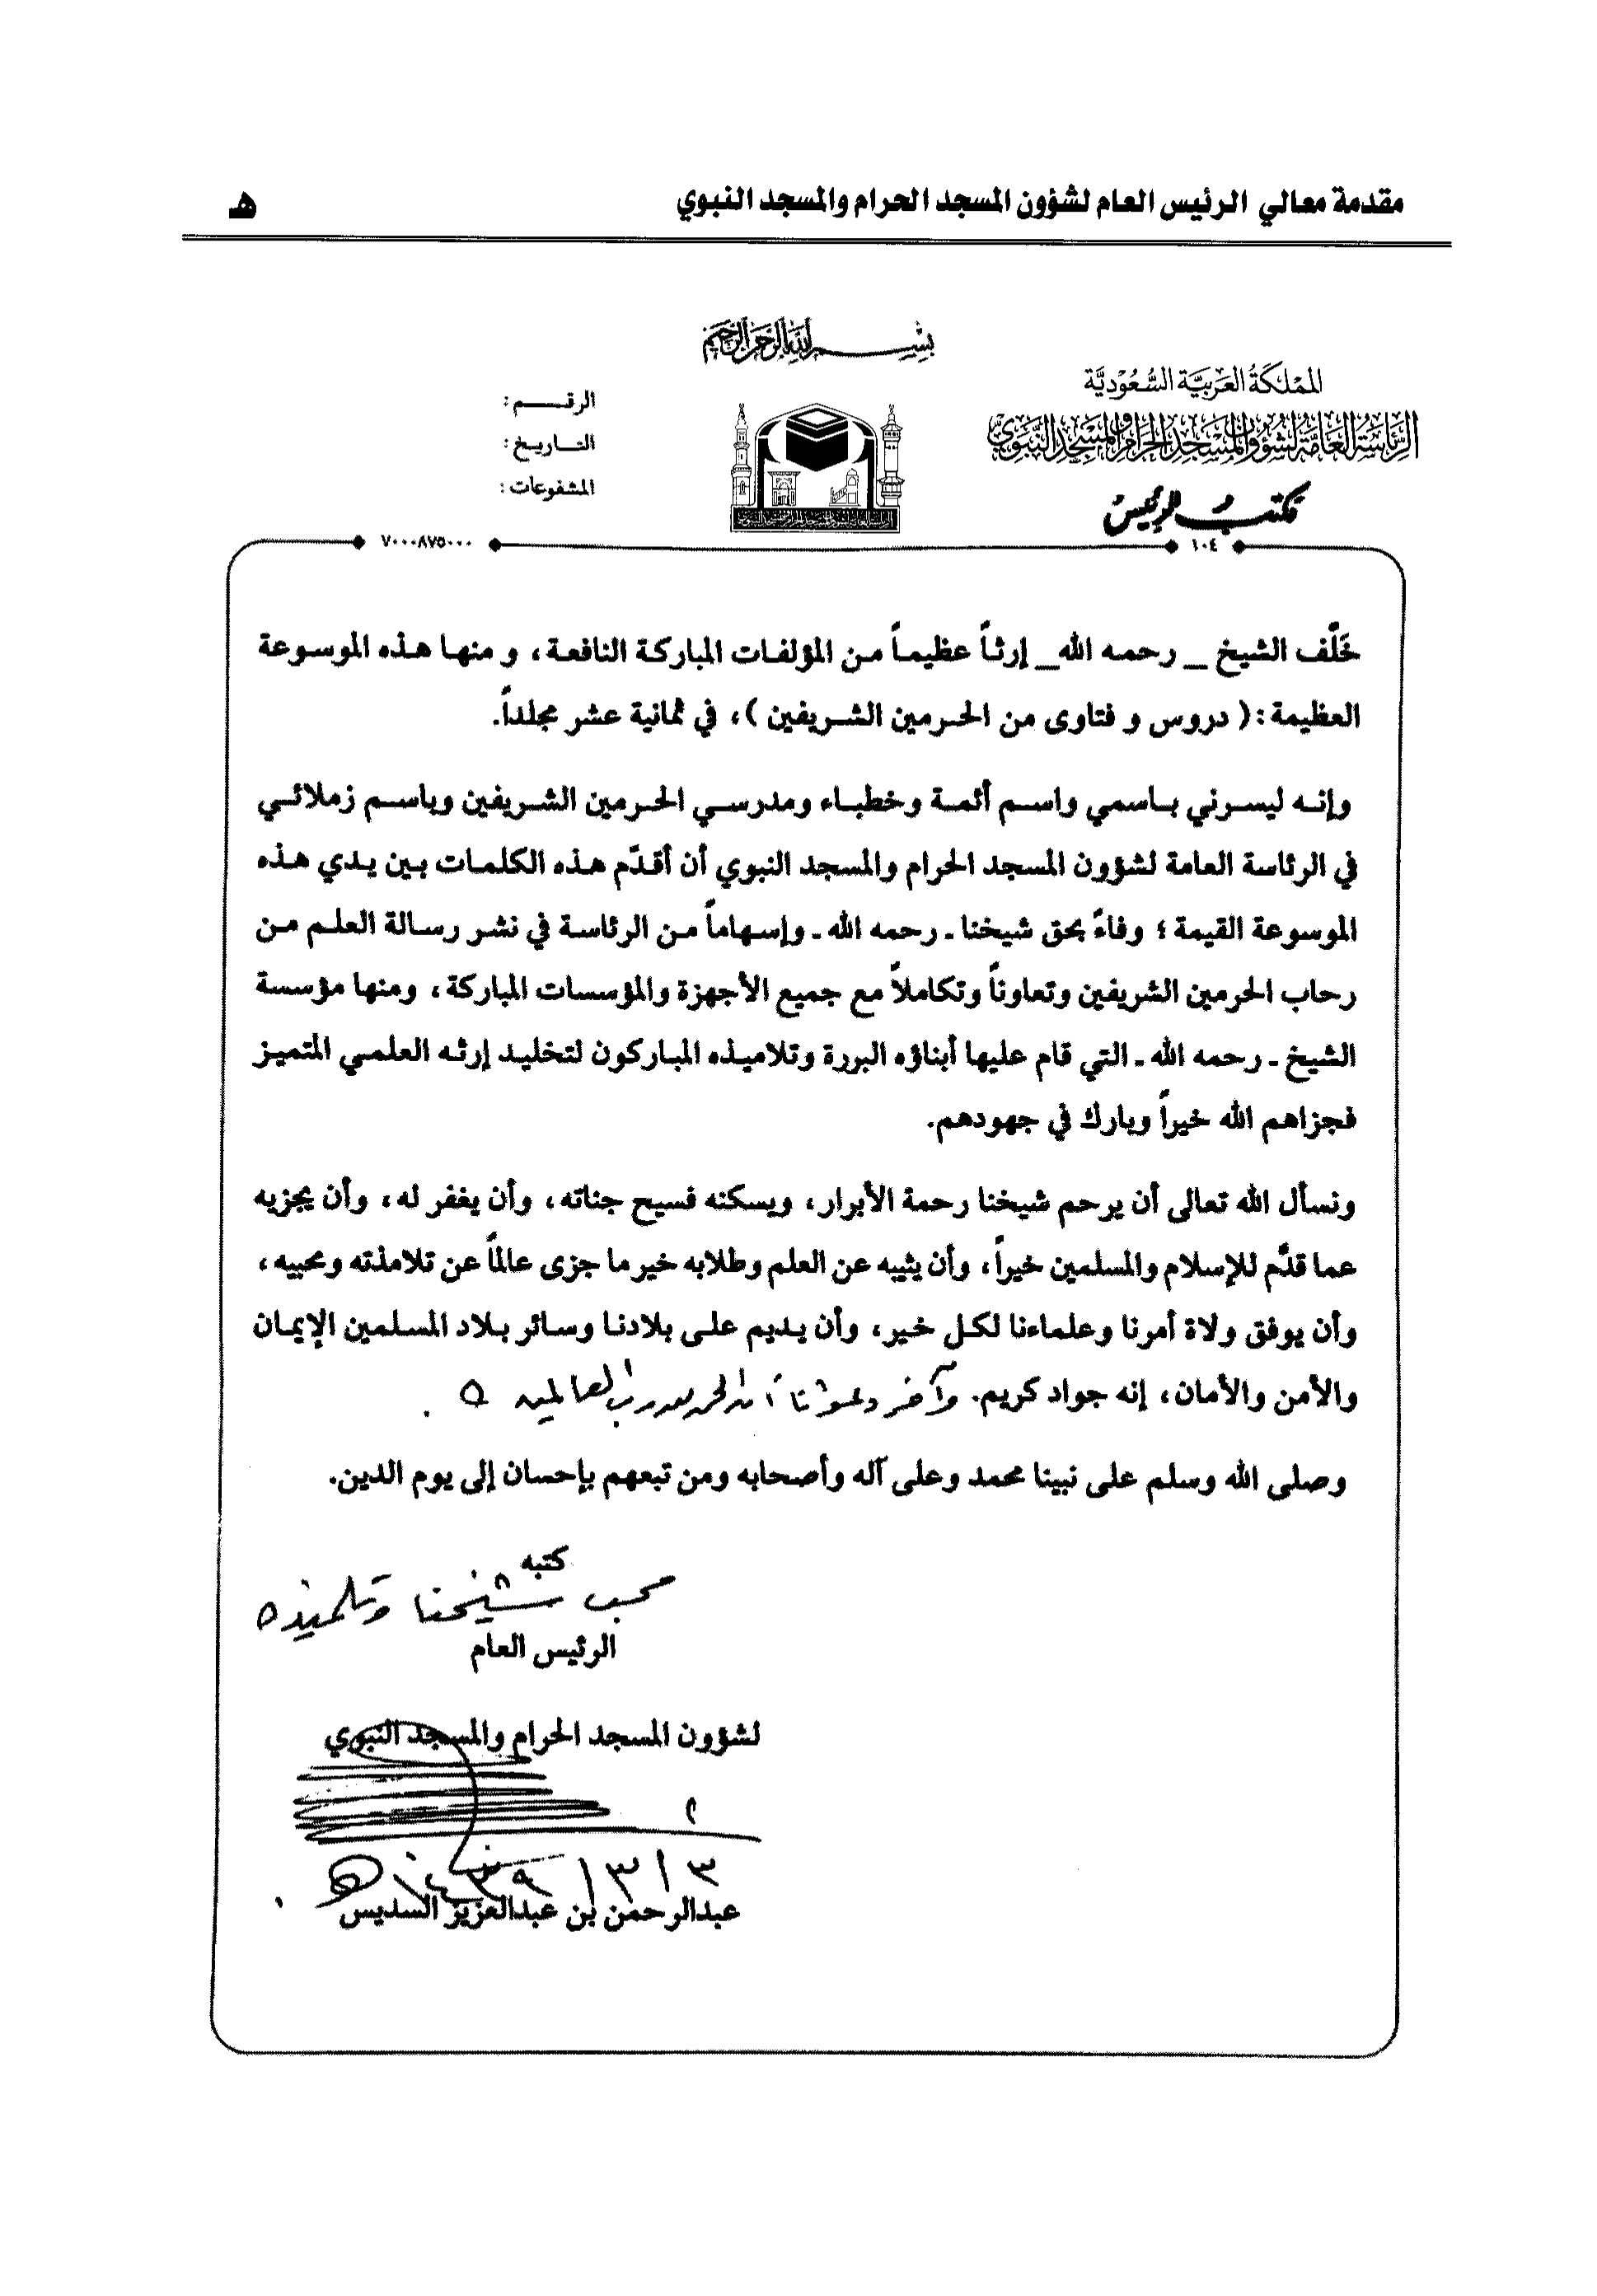 مقدمة معالي الرئيس العام لشؤون المسجد الحرام والمسجد النبوي
هـ
بسم الله الرحمن الرحيم
المملكة العربية السعودية
الرئاسة العامة لشؤون المسجد الحرام والمسجد النبوي
مكتب الرئيس
الرقــــم :
التـاريـخ :
المشفوعات :
١٠٤
٧٠٠٠٨٧٥٠٠٠
خَلّف الشيخ _ رحمه الله_ إرثاً عظيماً من المؤلفات المباركة النافعة، و منها هذه الموسوعة
العظيمة : ( دروس و فتاوى من الحرمين الشريفين )، في ثمانية عشر مجلداً.
وإنه ليسرني باسمي واسم أئمة وخطباء ومدرسي الحرمين الشريفين وباسم زملائي
في الرئاسة العامة لشؤون المسجد الحرام والمسجد النبوي أن أقدّم هذه الكلمات بين يدي هذه
الموسوعة القيمة ؛ وفاءً بحق شيخنا ـ رحمه الله ـ وإسهاماً من الرئاسة في نشر رسالة العلم من
رحاب الحرمين الشريفين وتعاوناً وتكاملاً مع جميع الأجهزة والمؤسسات المباركة، ومنها مؤسسة
الشيخ ـ رحمه الله ـ التي قام عليها أبناؤه البررة وتلاميذه المباركون لتخليد إرثه العلمي المتميز
فجزاهم الله خيراً وبارك في جهودهم.
ونسأل الله تعالى أن يرحم شيخنا رحمة الأبرار، ويسكنه فسيح جناته، وأن يغفر له، وأن يجزيه
عما قدَّم للإسلام والمسلمين خيراً، وأن يثيبه عن العلم وطلابه خير ما جزى عالماً عن تلامذته ومحبيه،
وأن يوفق ولاة أمرنا وعلماءنا لكل خير، وأن يديم على بلادنا وسائر بلاد المسلمين الإيمان
والأمن والأمان، إنه جواد كريم. وآخر دعوانا أن الحمد لله رب العالمين .
وصلى الله وسلم على نبينا محمد وعلى آله وأصحابه ومن تبعهم بإحسان إلى يوم الدين.
كتبه
محب شيخنا وتلميذه
الرئيس العام
لشؤون المسجد الحرام والمسجد النبوي
١٤٣٩/٣/٣ هـ
عبدالرحمن بن عبدالعزيز السديس